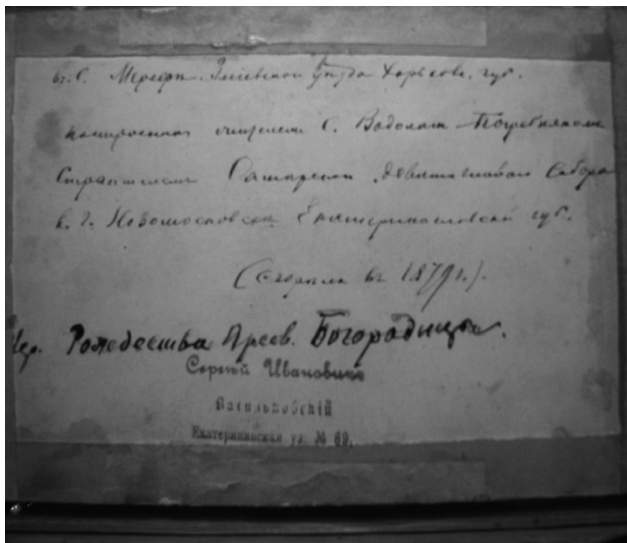 въ С. Мерефѣ Зміевской уѣзда Харьков. губ.
построенная С. Водолаги Погребнякомъ
Строителемъ Самарскаго девятиглаваго Собора
в. г. Новомосковскѣ Екатеринославской губ.
(Сгорѣла въ 1879 г.).
Цер. Рождества Пресв. Богородицы.
Сергѣй Ивановичъ
Васильковскій
Екатерининская ул. № 69.